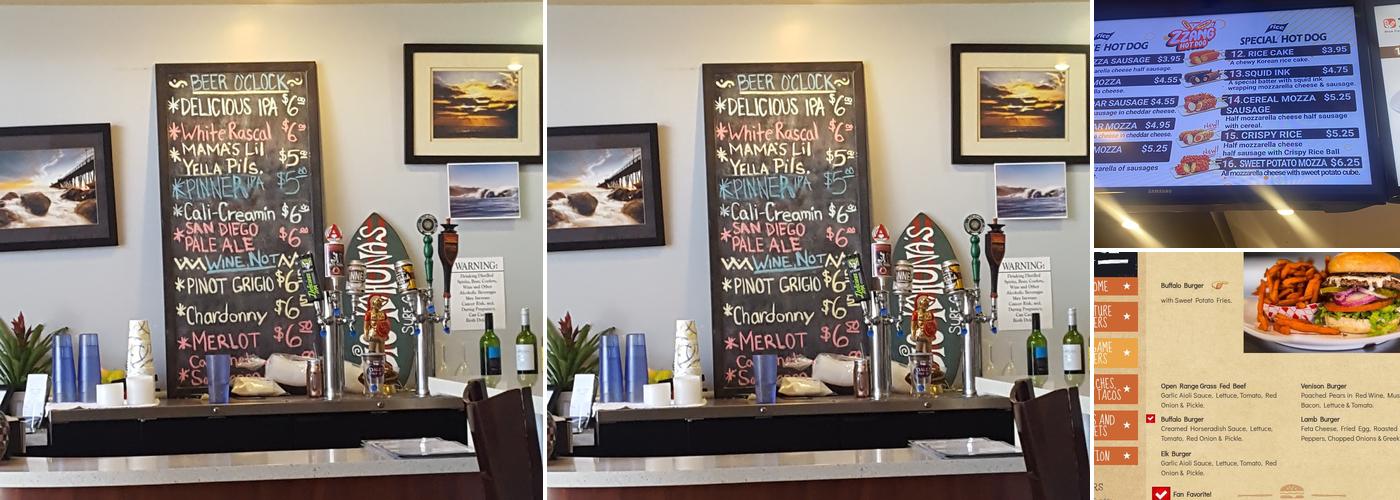 BEER O'CLOCK
*DELICIOUS IPA $6
*White Rascal $6
*MAMA'S Lil
YELLA PilS. $5
*PINNER IPA $5
*Cali-Creamin $6
*SAN DIEGO
PALE ALE $6
WINE, NOT
*PINOT GRIGIO $6
*Chardonny $6
*MERLOT $6
WARNING:
Drinking Distilled
Spirits, Beer, Coolers,
Wine and Other
Alcoholic Beverages
May Increase
Cancer Risk, and,
During Pregnancy,
BEER O'CLOCK
*DELICIOUS IPA $6
*White Rascal $6
*MAMA'S Lil
YELLA PilS. $5
*PINNER IPA $5
*Cali-Creamin $6
*SAN DIEGO
PALE ALE $6
WINE, NOT
*PINOT GRIGIO $6
*Chardonny $6
*MERLOT $6
WARNING:
Drinking Distilled
Spirits, Beer, Coolers,
Wine and Other
Alcoholic Beverages
May Increase
Cancer Risk, and,
During Pregnancy,
ZZANG
HOT DOG
HOT DOG
ZZA SAUSAGE $3.95
zarella cheese half sausage.
MOZZA $4.55
AR SAUSAGE $4.55
AR MOZZA $4.95
cheese in cheddar cheese.
MOZZA $5.25
rice
SPECIAL HOT DOG
12. RICE CAKE $3.95
A chewy Korean rice cake.
13.SQUID INK $4.75
A special batter with squid ink
wrapping mozzarella cheese & sausage.
14.CEREAL MOZZA $5.25
SAUSAGE
Half mozzarella cheese half sausage
with cereal.
New!
15. CRISPY RICE $5.25
Half mozzarella cheese
half sausage with Crispy Rice Ball
New!
16. SWEET POTATO MOZZA $6.25
All mozzarella cheese with sweet potato cube.
SAMSUNG
Buffalo Burger
with Sweet Potato Fries.
Open Range Grass Fed Beef
Garlic Aioli Sauce, Lettuce, Tomato, Red
Onion & Pickle.
Buffalo Burger
Creamed Horseradish Sauce, Lettuce,
Tomato, Red Onion & Pickle.
Elk Burger
Garlic Aioli Sauce, Lettuce, Tomato, Red
Onion & Pickle.
Fan Favorite!
Venison Burger
Poached Pears in Red Wine, Mus
Bacon, Lettuce & Tomato.
Lamb Burger
Feta Cheese, Fried Egg, Roasted
Peppers, Chopped Onions & Greek